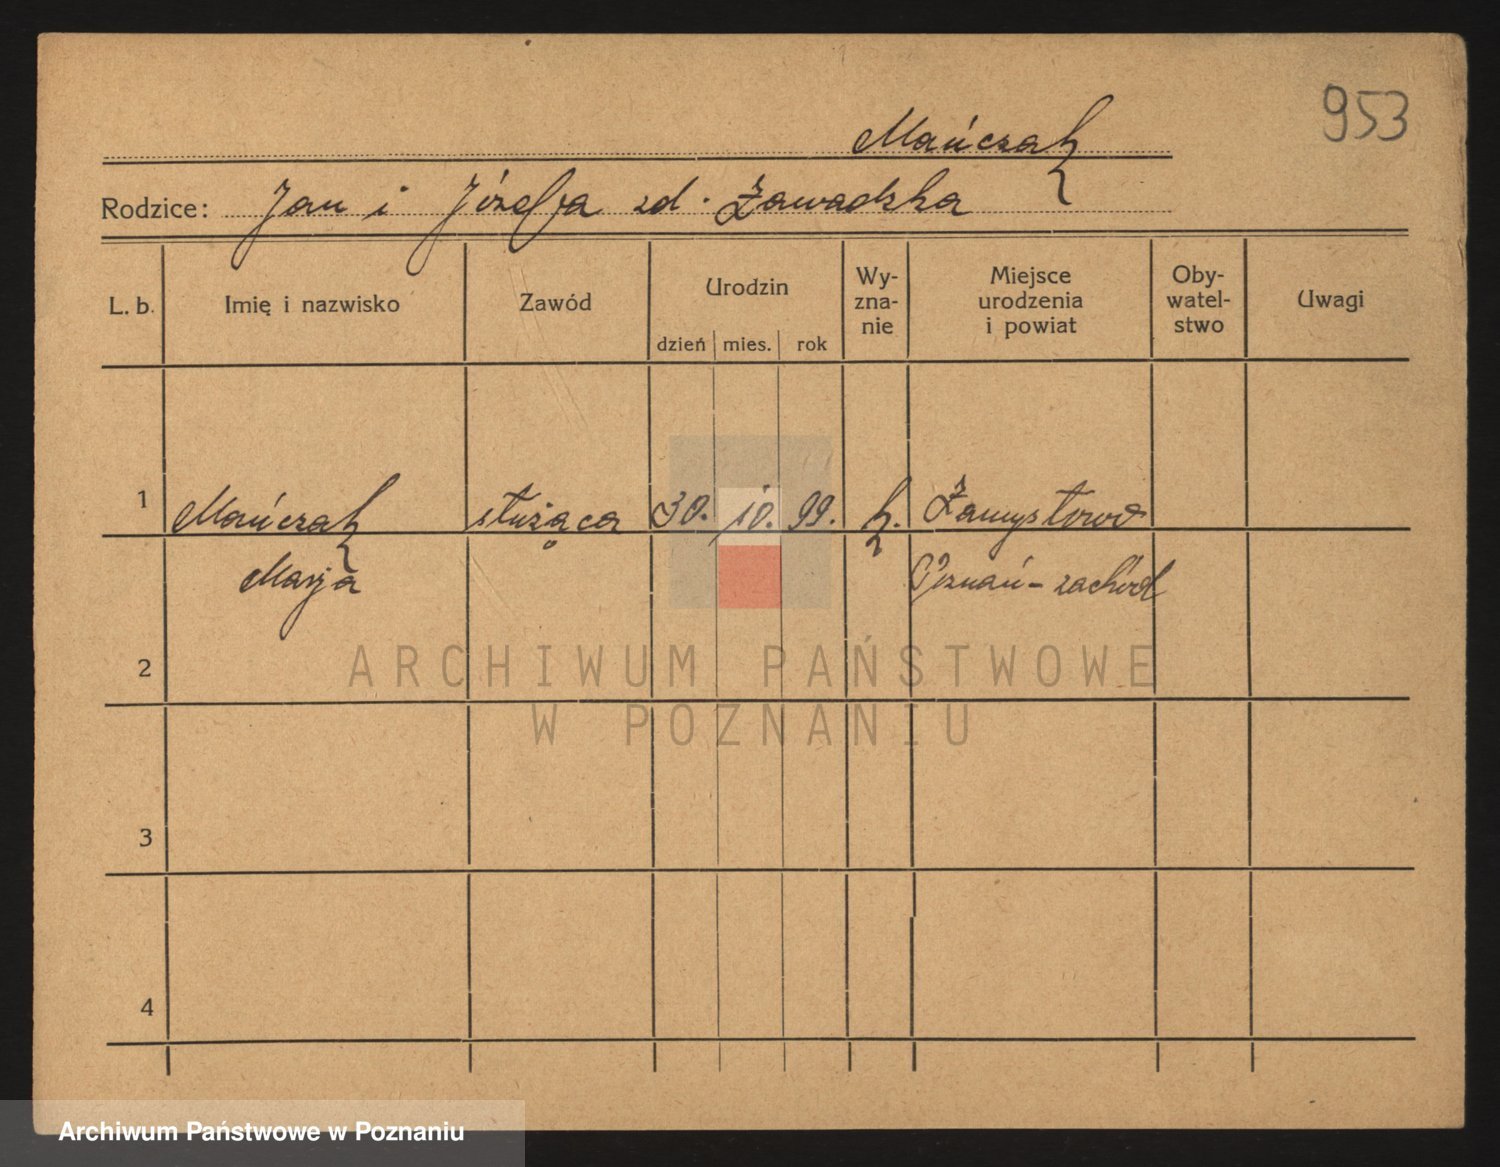 953
Mańczak
Rodzice: Jan i Józefa zd. Zawadzka
L. b. Imię i nazwisko Zawód Urodzin dzień mies. rok Wy-zna-nie Miejsce urodzenia i powiat Oby-watel-stwo Uwagi
1 Mańczak służąca 30. 10. 99. k. Zamysłowo
Marja Poznań-zachód
2
3
4
ARCHIWUM PAŃSTWOWE
W POZNANIU
Archiwum Państwowe w Poznaniu